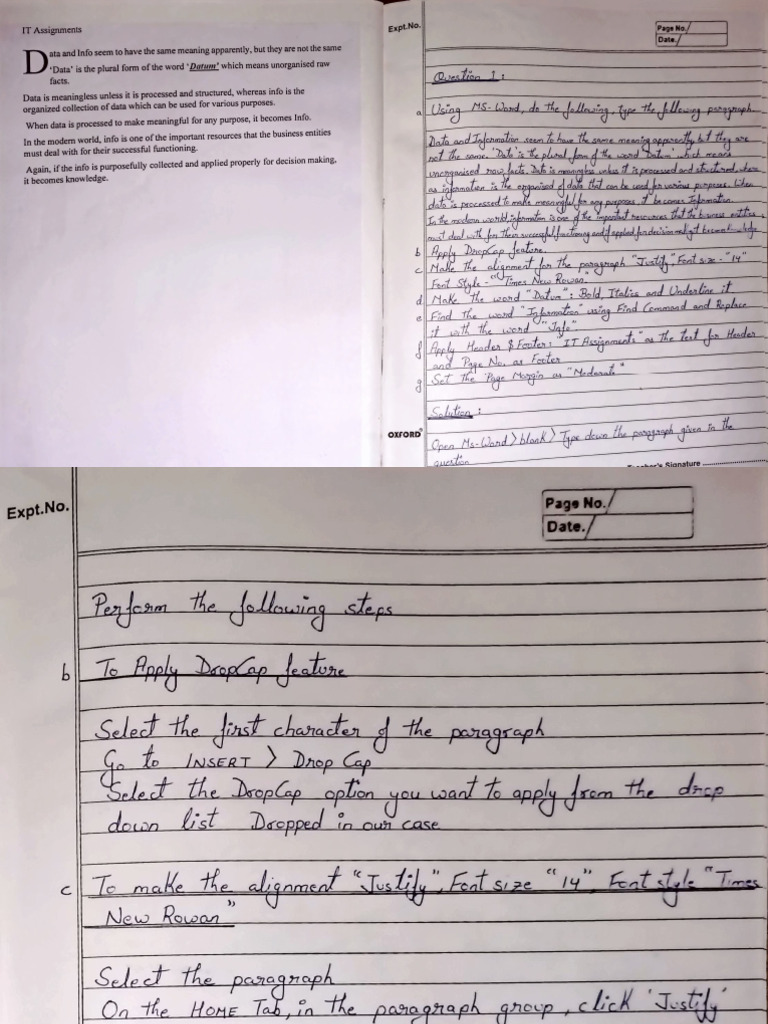 IT Assignments
Data and Info seem to have the same meaning apparently, but they are not the same
'Data' is the plural form of the word 'Datum' which means unorganised raw
facts.
Data is meaningless unless it is processed and structured, whereas info is the
organized collection of data which can be used for various purposes.
When data is processed to make meaningful for any purpose, it becomes Info.
In the modern world, info is one of the important resources that the business entities
must deal with for their successful functioning.
Again, if the info is purposefully collected and applied properly for decision making,
it becomes knowledge.
Expt.No.
Page No.
Date.
Question 1:
a Using MS-Word, do the following, type the following paragraph
Data and Information seem to have the same meaning apparently but they are
not the same. 'Data' is the plural form of the word 'Datum' which means
unorganised raw facts. Data is meaningless unless it is processed and structured, where
as information is the organised of data that can be used for various purposes. When
data is processed to make meaningful for any purposes, it becomes Information.
In the modern world, information is one of the important resources that the business entities
must deal with for their successful functioning and if applied for decision
b Apply DropCap feature.
c Make the alignment for the paragraph "Justify", Font size - "14"
Font Style - "Times New Rowan."
d Make the word "Datum": Bold, Italics and Underline it
e Find the word "Information" using Find Command and Replace
it with the word "Info".
f Apply Header & Footer: "IT Assignments" as the text for Header
and Page No. as Footer
g Set the Page Margin as "Moderate"
Solution:
OXFORD
Open Ms-Word > blank > Type down the paragraph given in the
question
Teacher's Signature
Expt.No.
Page No.
Date.
Perform the following steps
b To Apply DropCap feature
Select the first character of the paragraph
Go to INSERT > Drop Cap
Select the DropCap option you want to apply from the drop
down list Dropped in our case
c To make the alignment "Justify", Font size "14", Font style "Times
New Rowan"
Select the paragraph
On the HOME Tab, in the paragraph group, click 'Justify'